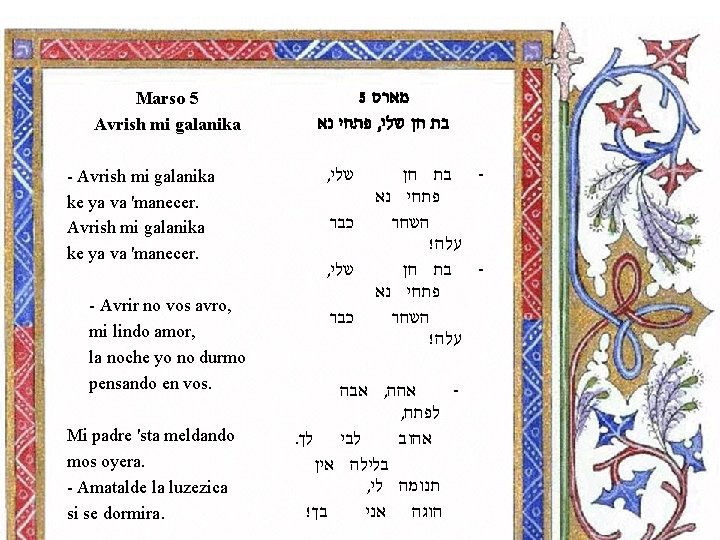 Marso 5
Avrish mi galanika
- Avrish mi galanika
ke ya va 'manecer.
Avrish mi galanika
ke ya va 'manecer.
- Avrir no vos avro,
mi lindo amor,
la noche yo no durmo
pensando en vos.
Mi padre 'sta meldando
mos oyera.
- Amatalde la luzezica
si se dormira.
מארס 5
בת חן שלי, פתחי נא
- בת חן שלי,
פתחי נא
השחר כבר
עלה!
- בת חן שלי,
פתחי נא
השחר כבר
עלה!
- אהה, אבה
לפתח,
אהוב לבי לך.
בלילה אין
תנומה לי,
הוגה אני בך!